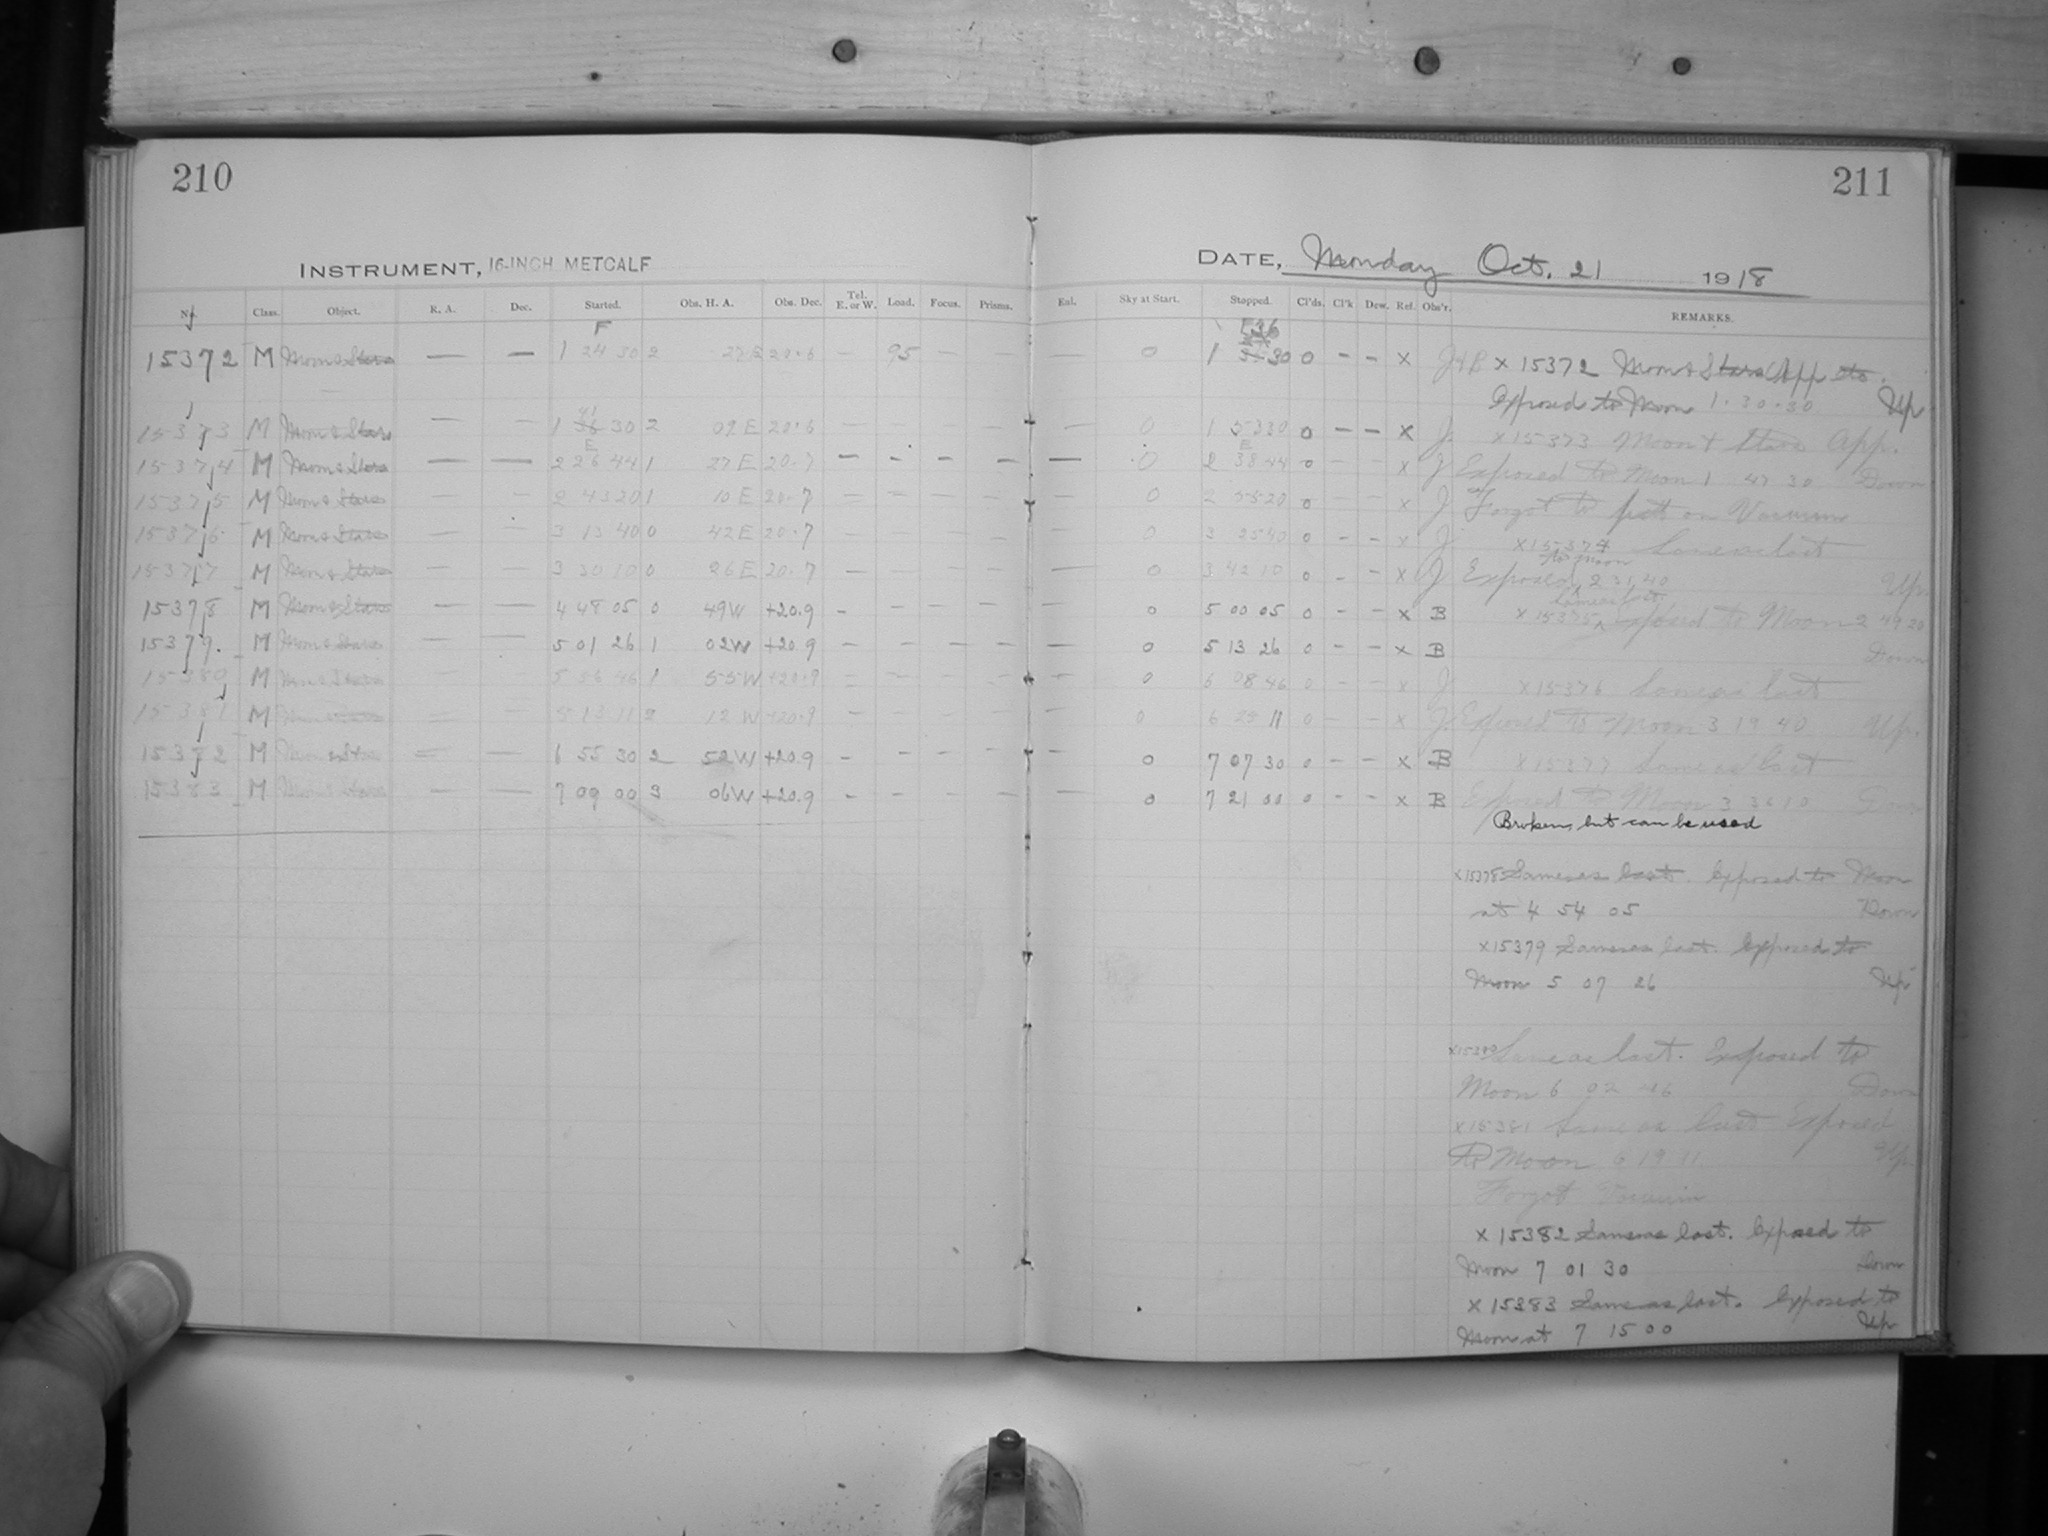 210
211
INSTRUMENT, 16-INCH METCALF
DATE, Monday Oct. 21 1918
No. Class. Object. R. A. Dec. Started. Obs. H. A. Obs. Dec. Tel. E. or W. Load. Focus. Prisms. Enl. Sky at Start. Stopped. Cl'ds. Cl'k Dew. Ref. Obs'r. REMARKS.
15372 M Moon & Stars — — 1 24 30 2 27 E 20.6 — 95 — — 0 1 36 30 0 – – x J&B x 15372 Moon & Stars App
Exposed to Moon 1.30.30 Up
15373 M Moon & Stars — — 1 41 30 2 09 E 20.6 — — — — — 0 1 53 30 0 – – x J x 15373 Moon & Stars App.
15374 M Moon & Stars — — 2 26 44 1 27 E 20.7 — — — — — 0 2 38 44 0 – – x J Exposed to Moon 1 47 30 Down
15375 M Moon & Stars — — 2 43 20 1 10 E 20.7 — — — — — 0 2 55 20 0 – – x J Forgot to put on Vacuum
15376 M Moon & Stars — — 3 13 40 0 42 E 20.7 — — — — — 0 3 25 40 0 – – x J x 15374 Same as last
15377 M Moon & Stars — — 3 30 10 0 26 E 20.7 — — — — — 0 3 42 10 0 – – x J Exposed to Moon 2 31 40 Up
15378 M Moon & Stars — — 4 48 05 0 49 W +20.9 – – – – — 0 5 00 05 0 – – x B x 15375 Same as last Exposed to Moon 2 49 20
15379. M Moon & Stars — — 5 01 26 1 02 W +20.9 – – – – — 0 5 13 26 0 – – x B Down
15380 M Moon & Stars — 5 56 46 1 55 W +20.9 – – – – — 0 6 08 46 0 – – x J x 15376 Same as last
15381 M Moon & Stars — — 6 13 11 2 12 W +20.9 – – – – — 0 6 25 11 0 – – x J Exposed to Moon 3 19 40 Up.
15382 M Moon & Stars — — 6 55 30 2 52 W +20.9 – – – – — 0 7 07 30 0 – – x B x 15377 Same as last
15383 M Moon & Stars — — 7 09 00 3 06 W +20.9 – – – – — 0 7 21 00 0 – – x B Exposed to Moon 3 36 10 Down
Broken, but can be used
x 15378 Same as last. Exposed to Moon
at 4 54 05 Down
x 15379 Same as last. Exposed to
Moon 5 07 26 Up
x 15380 Same as last. Exposed to
Moon 6 02 46 Down
x 15381 Same as last Exposed
to Moon 6 19 11 Up
Forgot Vacuum
x 15382 Same as last. Exposed to
Moon 7 01 30 Down
x 15383 Same as last. Exposed to
Moon at 7 15 00 Up